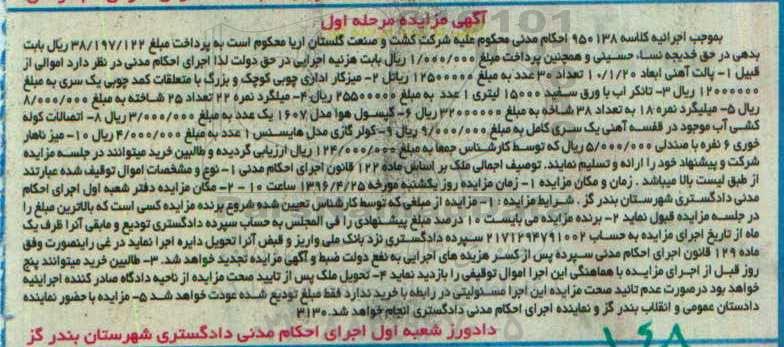 آگهی مزایده مرحله اول
بموجب اجرائیه کلاسه ۹۵۰۱۳۸ احکام مدنی محکوم علیه شرکت کشت و صنعت گلستان اریا محکوم است به پرداخت مبلغ ۳۸/۱۹۷/۱۲۲ ریال بابت
بدهی در حق خدیجه نساء حسینی و همچنین پرداخت مبلغ ۱/۰۰۰/۰۰۰ ریال بابت هزینه اجرایی در حق دولت لذا اجرای احکام مدنی در نظر دارد اموالی از
قبیل ۱- پالت آهنی ابعاد ۱۰/۱/۲۰ تعداد ۳۰ عدد به مبلغ ۱۲۵۰۰۰۰۰ ریال ۲- میزکار اداری چوبی کوچک و بزرگ با متعلقات کمد چوبی یک سری به مبلغ
۱۲۰۰۰۰۰۰ ریال ۳- تانکر اب با ورق سفید ۱۵۰۰۰ لیتری ۱ عدد به مبلغ ۲۵۵۰۰۰۰۰ ریال ۴- میلگرد نمره ۲۲ تعداد ۲۵ شاخته به مبلغ ۸/۰۰۰/۰۰۰
ریال ۵- میلیگرد نمره ۱۸ به تعداد ۳۸ شاخه به مبلغ ۳۲۰۰۰۰۰۰ ریال ۶- کپسول هوا مدل ۱۶۰۷ یک عدد به مبلغ ۳/۰۰۰/۰۰۰ ریال ۸- اتصالات کوله
کشی آب موجود در قفسه آهنی یک سری کامل به مبلغ ۹/۰۰۰/۰۰۰ ریال ۹- کولر گازی مدل هایسنس ۱ عدد به مبلغ ۴/۰۰۰/۰۰۰ ریال ۱۰- میز ناهار
خوری ۶ نفره با صندلی ۵/۰۰۰/۰۰۰ ریال که توسط کارشناس جمعا به مبلغ ۱۲۴/۰۰۰/۰۰۰ ریال ارزیابی گردیده و طالبین خرید میتوانند در جلسه مزایده
شرکت و پیشنهاد خود را ارائه و تسلیم نمایند. توصیف اجمالی ملک بر اساس ماده ۱۲۲ قانون اجرای احکام مدنی ۱- نوع و مشخصات اموال توقیف شده عبارتند
از طبق لیست بالا میباشد . زمان و مکان مزایده ۱- زمان مزایده روز یکشنبه مورخه ۱۳۹۶/۴/۲۵ ساعت ۱۰ - ۲- مکان مزایده دفتر شعبه اول اجرای احکام
مدنی دادگستری شهرستان بندر گز . شرایط مزایده : ۱- مزایده از مبلغی که توسط کارشناس تعیین شده شروع برنده مزایده کسی است که بالاترین مبلغ را
در جلسه مزایده قبول نماید ۲- برنده مزایده می بایست ۱۰ درصد مبلغ پیشنهادی را فی المجلس به حساب سپرده دادگستری تودیع و مابقی آنرا ظرف یک
ماه از تاریخ اجرای مزایده به حساب ۲۱۷۱۲۹۴۷۹۱۰۰۲ سپرده دادگستری نزد بانک ملی واریز و قبض آنرا تحویل دایره اجرا نماید در غی راینصورت وفق
ماده ۱۲۹ قانون اجرای احکام مدنی سپرده پس از کسر هزینه های اجرایی به نفع دولت ضبط و آگهی مزایده تجدید خواهد شد. ۳- طالبین خرید میتوانند پنج
روز قبل از اجرای مزایده با هماهنگی این اجرا اموال توقیفی را بازدید نماید ۴- تحویل ملک پس از تایید صحت مزایده از ناحیه دادگاه صادر کننده اجرائیه
خواهد بود درصورت عدم تائید صحت مزایده این اجرا مسئولیتی در رابطه با خرید ندارد فقط مبلغ تودیع شده عودت خواهد شد ۵- مزایده با حضور نماینده
دادستان عمومی و انقلاب بندر گز و نماینده اجرای احکام مدنی دادگستری انجام خواهد شد. ۳۱۳۰
دادورز شعبه اول اجرای احکام مدنی دادگستری شهرستان بندر گز
۱۶۸